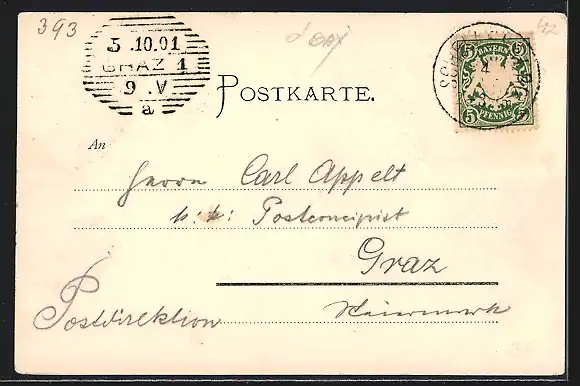 393
5.10.01
GRAZ 1
9.V
a
BAYERN
5 5
5 PFENNIG 5
POSTKARTE.
An
Herrn Carl Appelt
k: k: Postconcipist
Graz
Postdirektion Steiermark